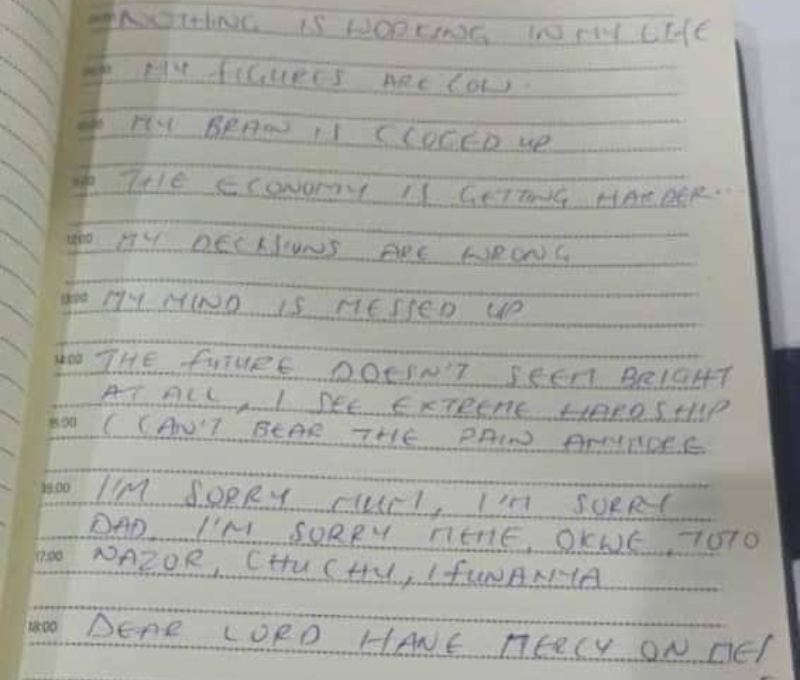 NOTHING IS WORKING IN MY LIFE
MY FIGURES ARE LOW
MY BRAIN IS CLOGED UP
11:00 THE ECONOMY IS GETTING HARDER..
12:00 MY DECISIONS ARE WRONG
13:00 MY MIND IS MESSED UP
14:00 THE FUTURE DOESN'T SEEM BRIGHT
AT ALL, I SEE EXTREME HARDSHIP
15:00 I CAN'T BEAR THE PAIN ANYMORE
16:00 I'M SORRY MUM, I'M SORRY
DAD, I'M SORRY MEME, OKWE, TOTO
17:00 NAZOR, CHUCHU, IFUNANYA
18:00 DEAR LORD HAVE MERCY ON ME!